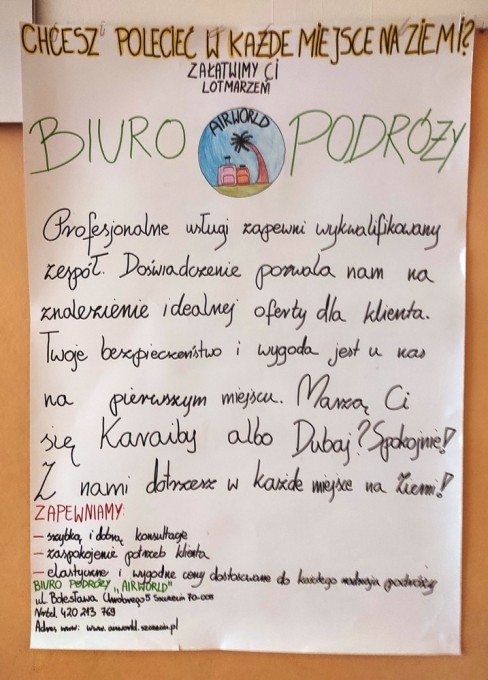 CHCESZ POLECIEĆ W KAŻDE MIEJSCE NA ZIEMI?
ZAŁATWIMY CI
LOT MARZEŃ
BIURO AIRWORLD PODRÓŻY
Profesjonalne usługi zapewni wykwalifikowany
zespół. Doświadczenie pozwala nam na
znalezienie idealnej oferty dla klienta.
Twoje bezpieczeństwo i wygoda jest u nas
na pierwszym miejscu. Marzą Ci
się Karaiby albo Dubaj? Spokojnie!
Z nami dotrzesz w każde miejsce na Ziemi!
ZAPEWNIAMY:
- szybką i dobrą konsultację
- zaspokojenie potrzeb klienta
- elastyczne i wygodne ceny dostosowane do każdego rodzaju podróży
BIURO PODRÓŻY „AIRWORLD"
ul. Bolesława Chrobrego 5 Szczecin 70-003
Nr tel. 420 213 769
Adres www: www.airworld.szczecin.pl